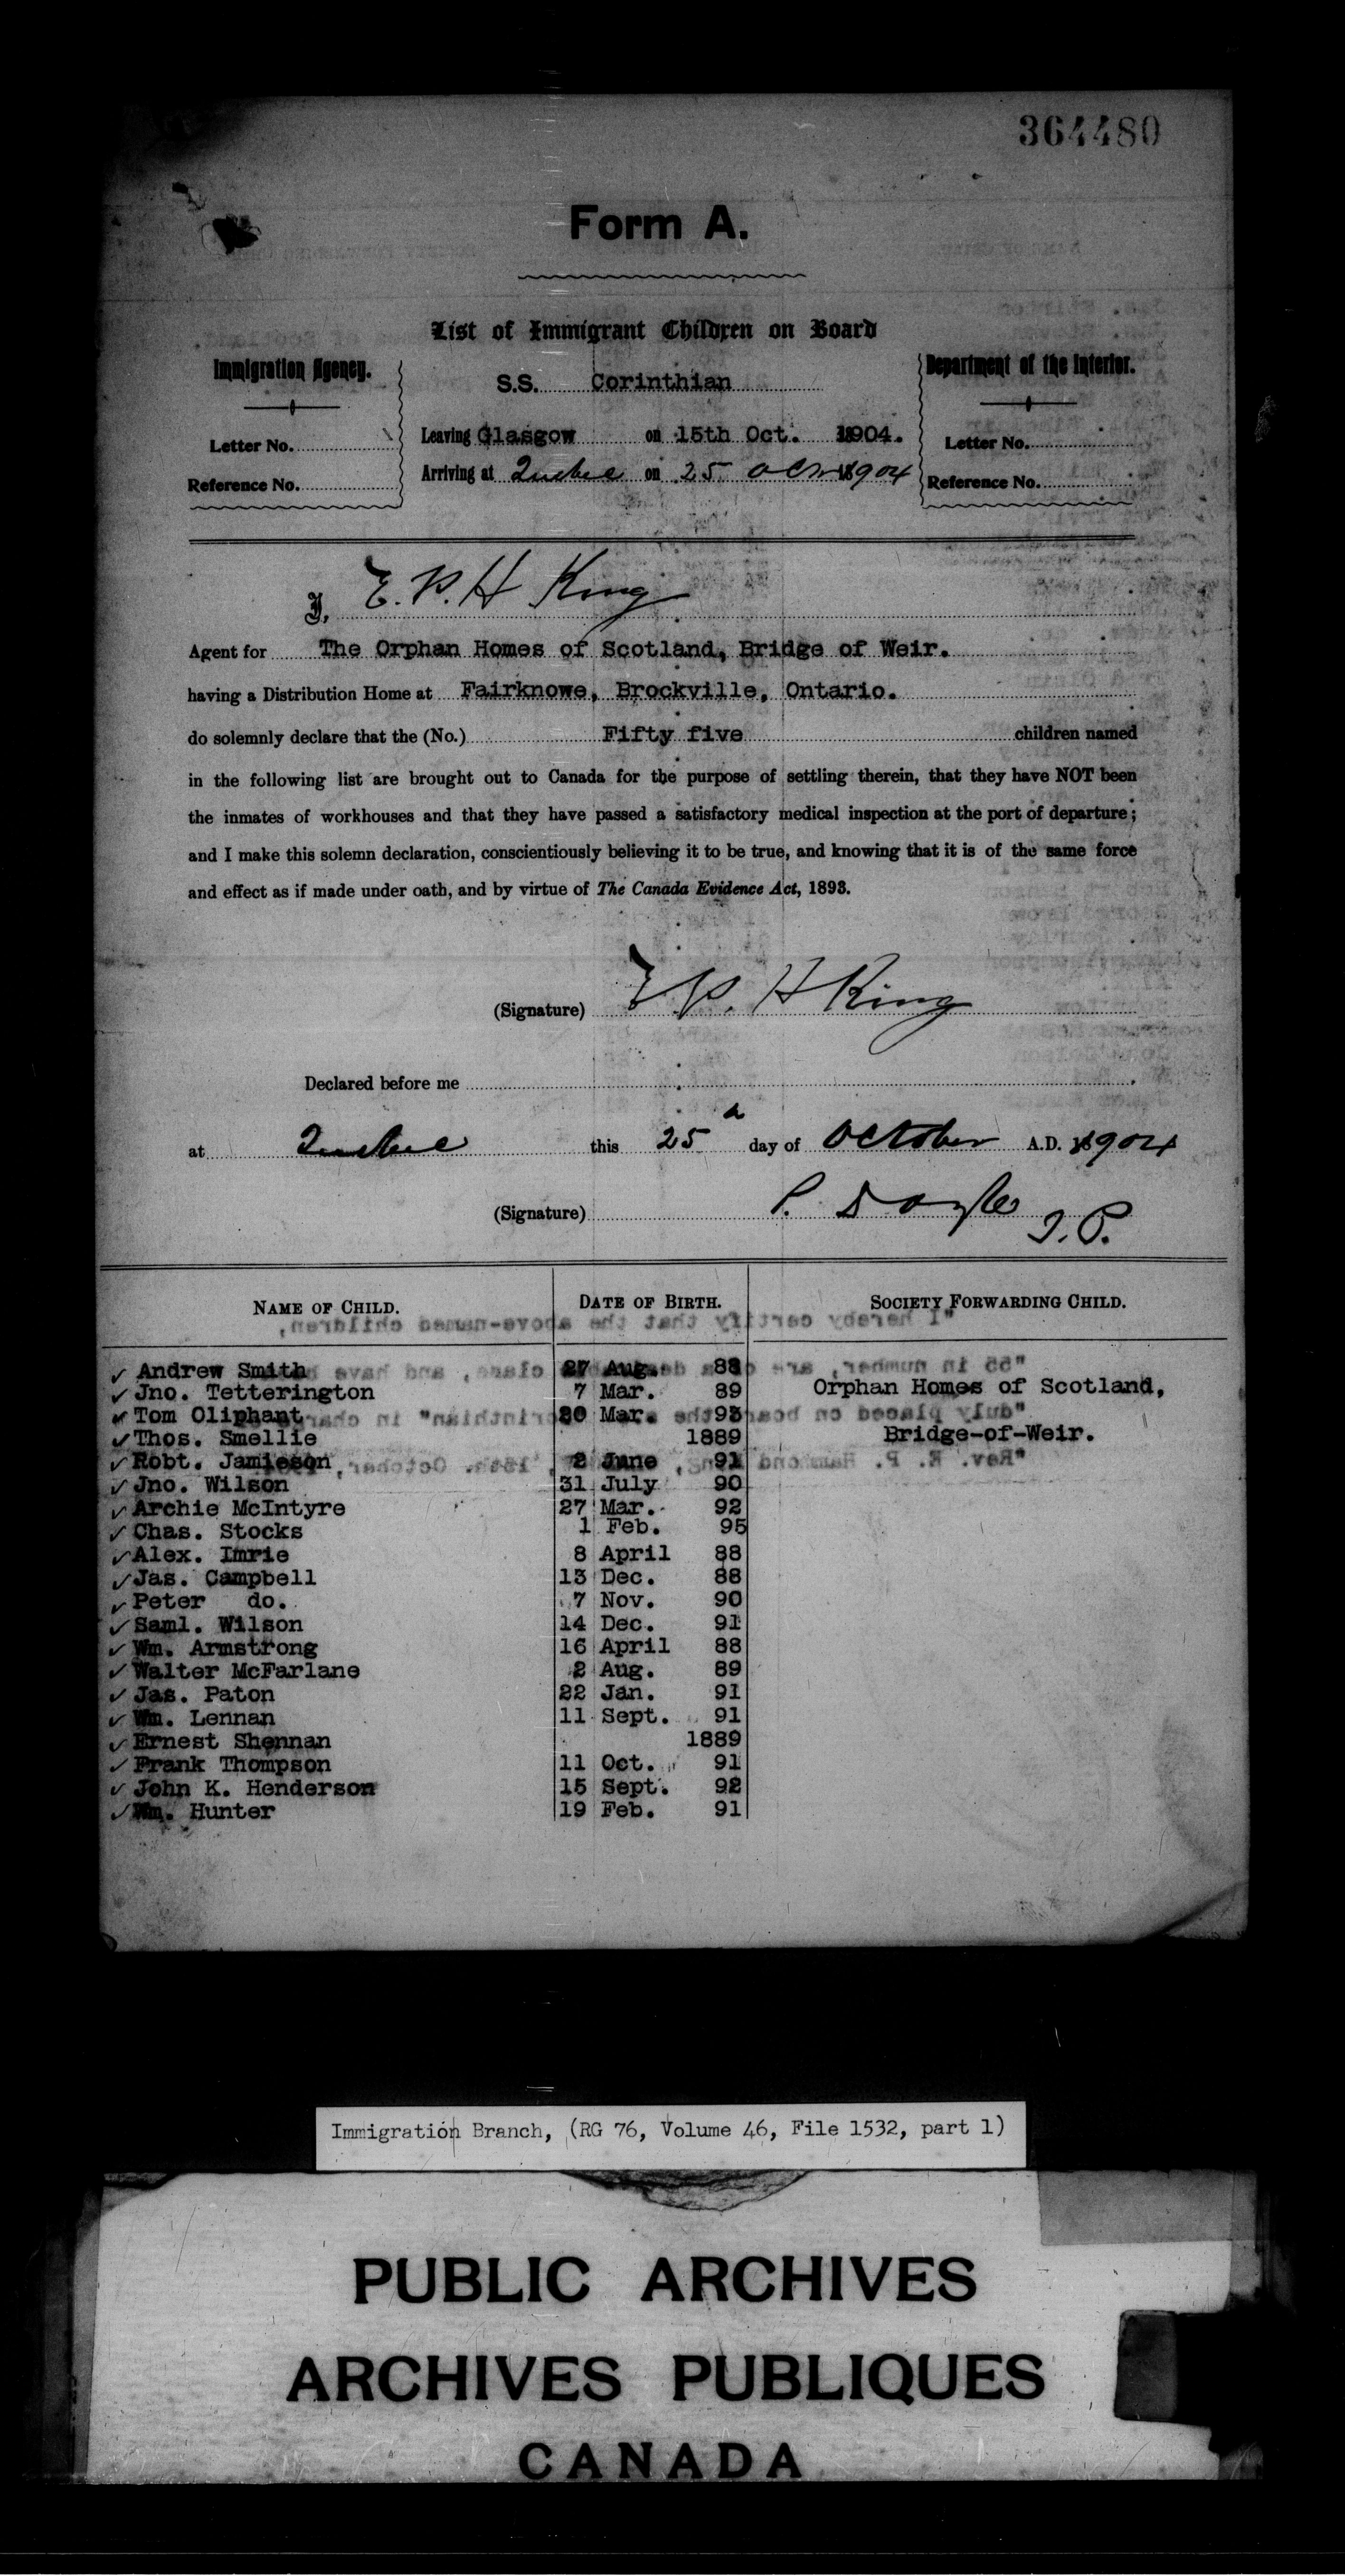 364480
Form A.
List of Immigrant Children on Board
Immigration Agency.
Letter No.
Reference No.
S.S. Corinthian
Leaving Glasgow on 15th Oct. 1904.
Arriving at Quebec on 25 Octr 1904
Department of the Interior.
Letter No.
Reference No.
I, E. P. H King
Agent for The Orphan Homes of Scotland, Bridge of Weir.
having a Distribution Home at Fairknowe, Brockville, Ontario.
do solemnly declare that the (No.) Fifty five children named
in the following list are brought out to Canada for the purpose of settling therein, that they have NOT been
the inmates of workhouses and that they have passed a satisfactory medical inspection at the port of departure;
and I make this solemn declaration, conscientiously believing it to be true, and knowing that it is of the same force
and effect as if made under oath, and by virtue of The Canada Evidence Act, 1893.
(Signature) E. P. H King
Declared before me
at Quebec this 25 day of October A.D. 1904
(Signature) P. Doyle J.P.
NAME OF CHILD. DATE OF BIRTH. SOCIETY FORWARDING CHILD.
✓ Andrew Smith 27 Aug. 88
✓ Jno. Tetterington 7 Mar. 89 Orphan Homes of Scotland,
✓ Tom Oliphant 20 Mar. 93
✓ Thos. Smellie 1889 Bridge-of-Weir.
✓ Robt. Jamieson 2 June 91
✓ Jno. Wilson 31 July 90
✓ Archie McIntyre 27 Mar. 92
✓ Chas. Stocks 1 Feb. 95
✓ Alex. Imrie 8 April 88
✓ Jas. Campbell 13 Dec. 88
✓ Peter do. 7 Nov. 90
✓ Saml. Wilson 14 Dec. 91
✓ Wm. Armstrong 16 April 88
✓ Walter McFarlane 2 Aug. 89
✓ Jas. Paton 22 Jan. 91
✓ Wm. Lennan 11 Sept. 91
✓ Ernest Shennan 1889
✓ Frank Thompson 11 Oct. 91
✓ John K. Henderson 15 Sept. 92
✓ Wm. Hunter 19 Feb. 91
Immigration Branch, (RG 76, Volume 46, File 1532, part 1)
PUBLIC ARCHIVES
ARCHIVES PUBLIQUES
CANADA